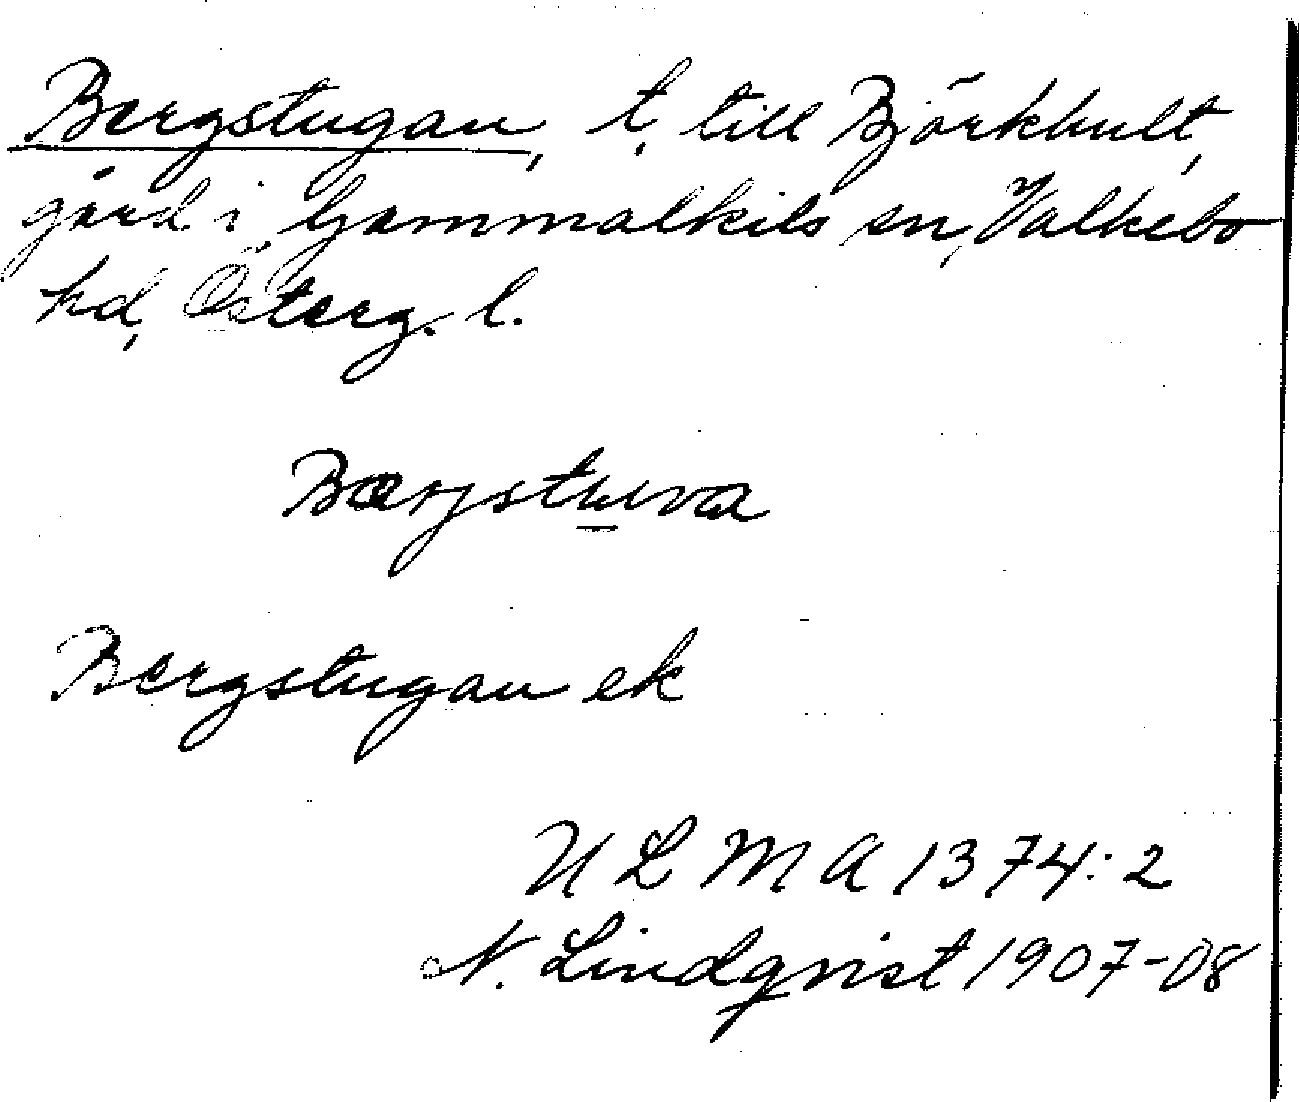 Bergstugan, t. till Björkhult,
gård i Gammalkils sn, Valkebo
hd, Österg. l.
Bærjstuva
Bergstugan ek
ULMA 1374:2
N. Lindqvist 1907-08